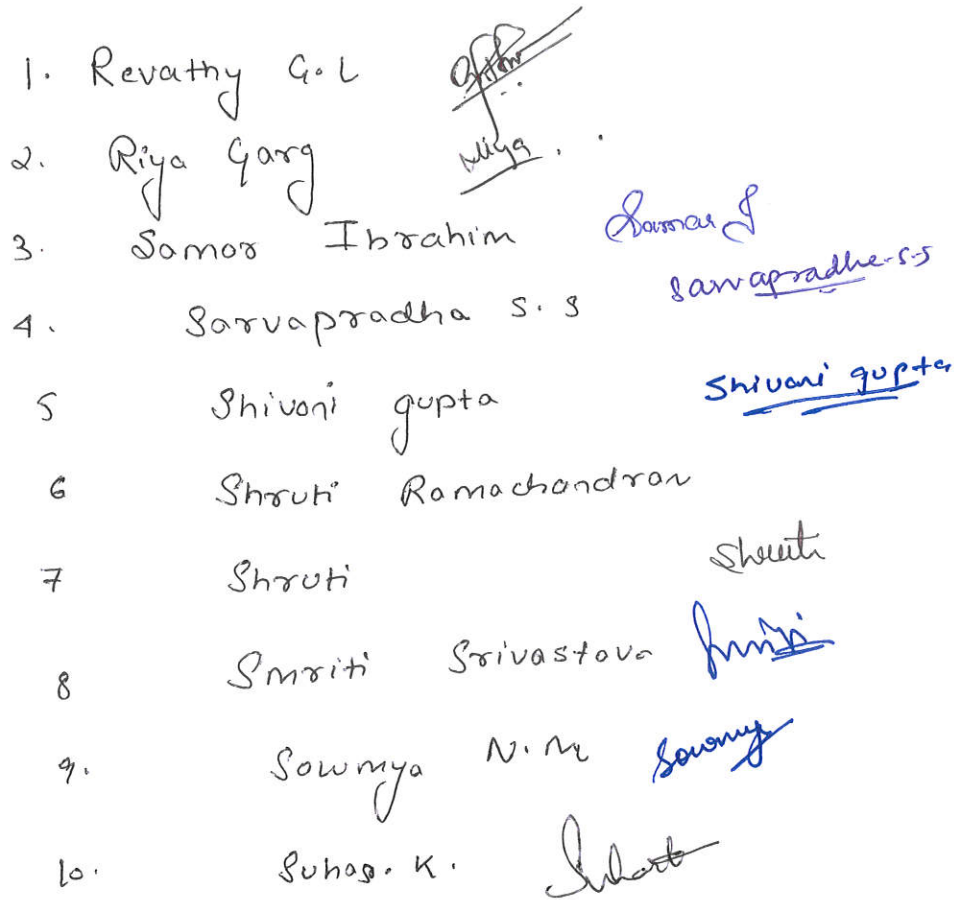 1. Revathy G.L
2. Riya Garg Riya.
3. Samar Ibrahim Samar I
4. Sarvapradha S.S Sarvapradha.S.S
5 Shivani gupta Shivani gupta
6 Shruti Ramachandran
7 Shruti Shruti
8 Smriti Srivastava
9. Sowmya N.M Sowmy
10. Suhas.K.